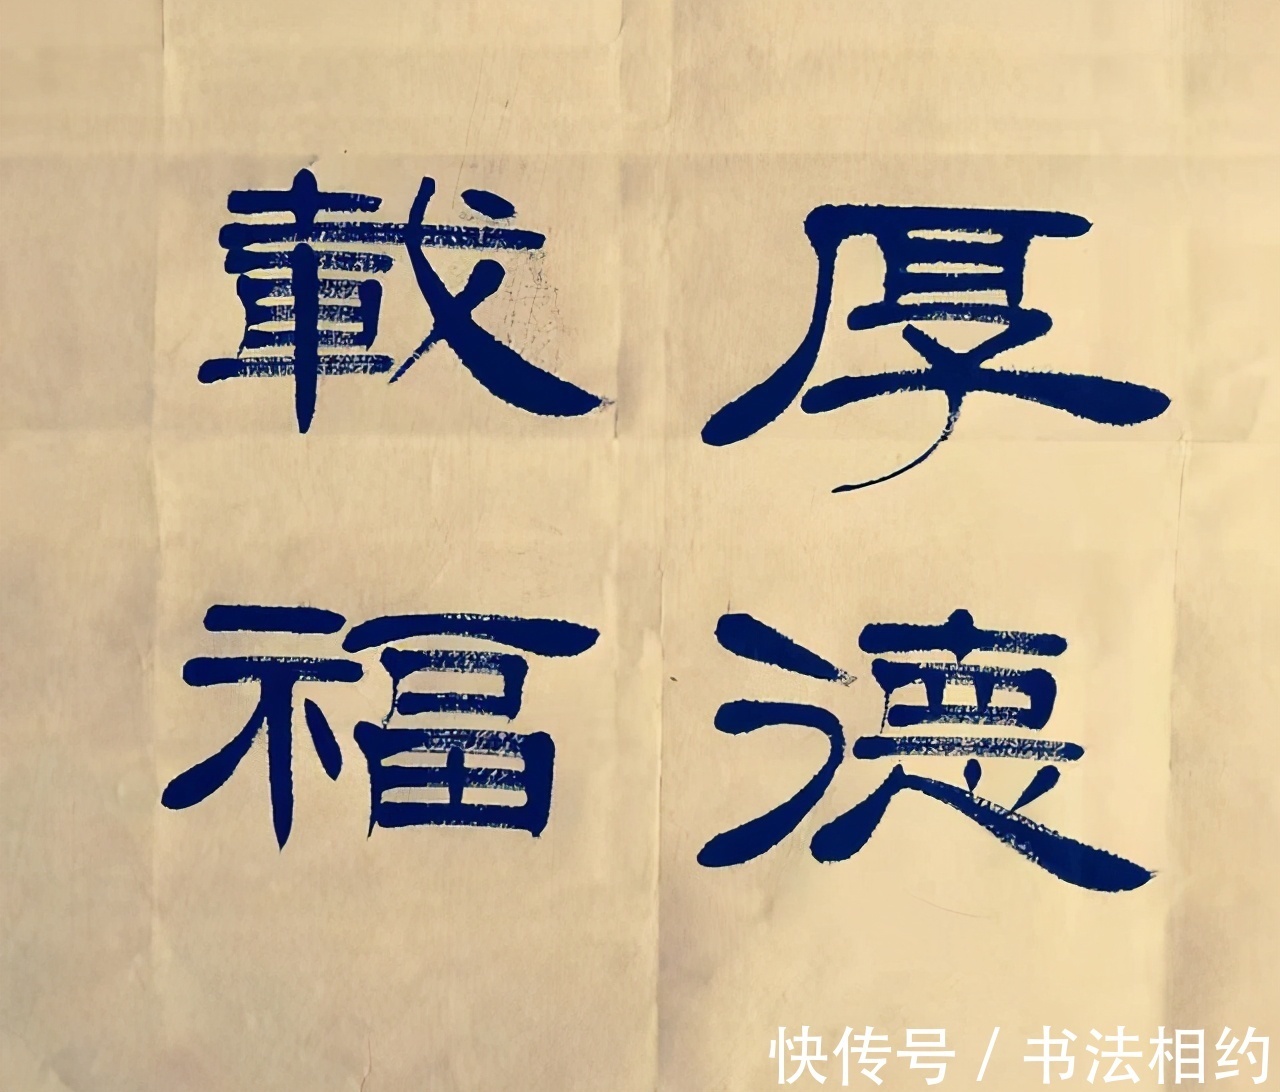 厚德
載福
快传号 / 书法相约